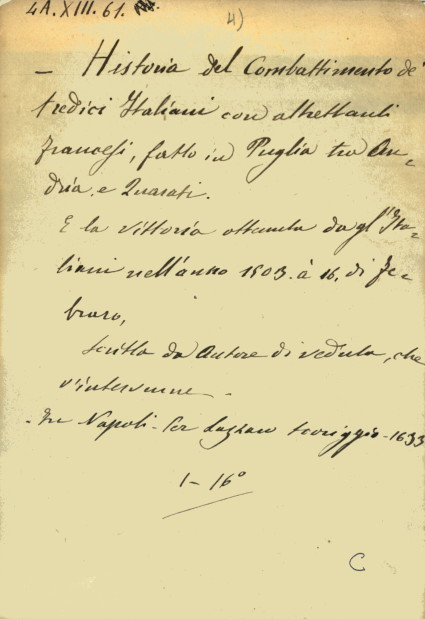 4A.XIII.61.
4)
– Historia del Combattimento de'
tredici Italiani con altrettanti
Francesi, fatto in Puglia tra An=
dria e Quarati.
E la vittoria ottenuta da gl'Ita=
liani nell'anno 1503. à 16. di Fe=
braro,
scritta da Autore di veduta, che
v'intervenne –
– In Napoli – Per Lazzaro Scoriggio – 1633
1 – 16°
C